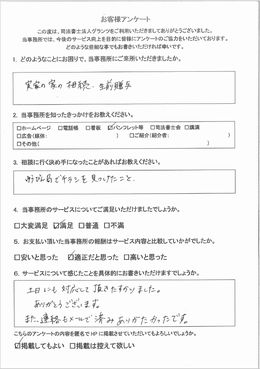 お客様アンケート
この度は、司法書士法人グランツをご利用いただきましてありがとうございました。
当事務所では、今後のサービス向上を目的に皆様にアンケートのご協力をいただいております。
どのような些細な事でもお書きいただければ幸いです。
1. どのようなことにお困りで、当事務所にご来所いただきましたか。
実家の家の相続、生前贈与
2. 当事務所を知ったきっかけをお教えください。
□ホームページ □電話帳 □看板 ☑パンフレット等 □司法書士会 □講演
□広告(媒体: ) □ご紹介(紹介者: )
□その他( )
3. 相談に行く決め手になったことがあればお教えください。
でチラシを見つけたこと。
4. 当事務所のサービスについてご満足いただけましたでしょうか。
□大変満足 ☑満足 □普通 □不満
5. お支払い頂いた当事務所の報酬はサービス内容と比較していかがでしたか。
□安いと思った ☑適正だと思った □高いと思った
6. サービスについて感じたことを具体的にお書きいただけますでしょうか。
土日にも対応して頂きたすかりました。
ありがとうございます。
また、連絡もメールで済みありがたかったです。
こちらのアンケートの内容を匿名でHPに掲載させていただいてもよろしいでしょうか。
☑掲載してもよい □掲載は控えて欲しい